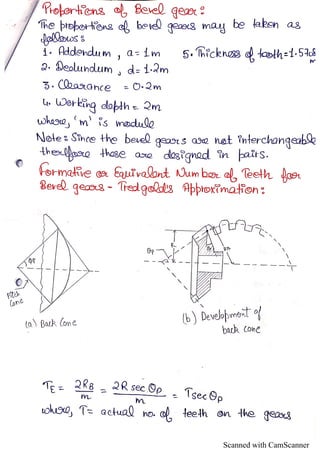 Proportions of Bevel gear:
The proportions of bevel gears may be taken as
follows:
1. Addendum, a = 1m 5. Thickness of tooth = 1.5708 m
2. Dedundum, d = 1.2m
3. Clearance = 0.2m
4. Working depth = 2m
where, 'm' is module
Note: Since the bevel gears are not interchangeable
therefore these are designed in pairs.
Formative or Equivalent Number of Teeth for
Bevel gears - Tredgold's Approximation:
θP
Pitch
Cone
(a) Back Cone
θP
R
(b) Development of
back cone
TE = 2RB / m = 2R sec θP / m = T sec θP
where, T = actual no. of teeth on the gears
Scanned with CamScanner